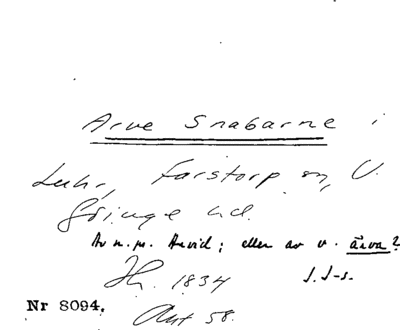 Arve Snabarne i
Luhr, Farstorp sn, V.
Göinge hd.
Av n. pr. Arvid; eller av v. ärva?
Jh. 1834 J. J-s.
Nr 8094. Akt 58.